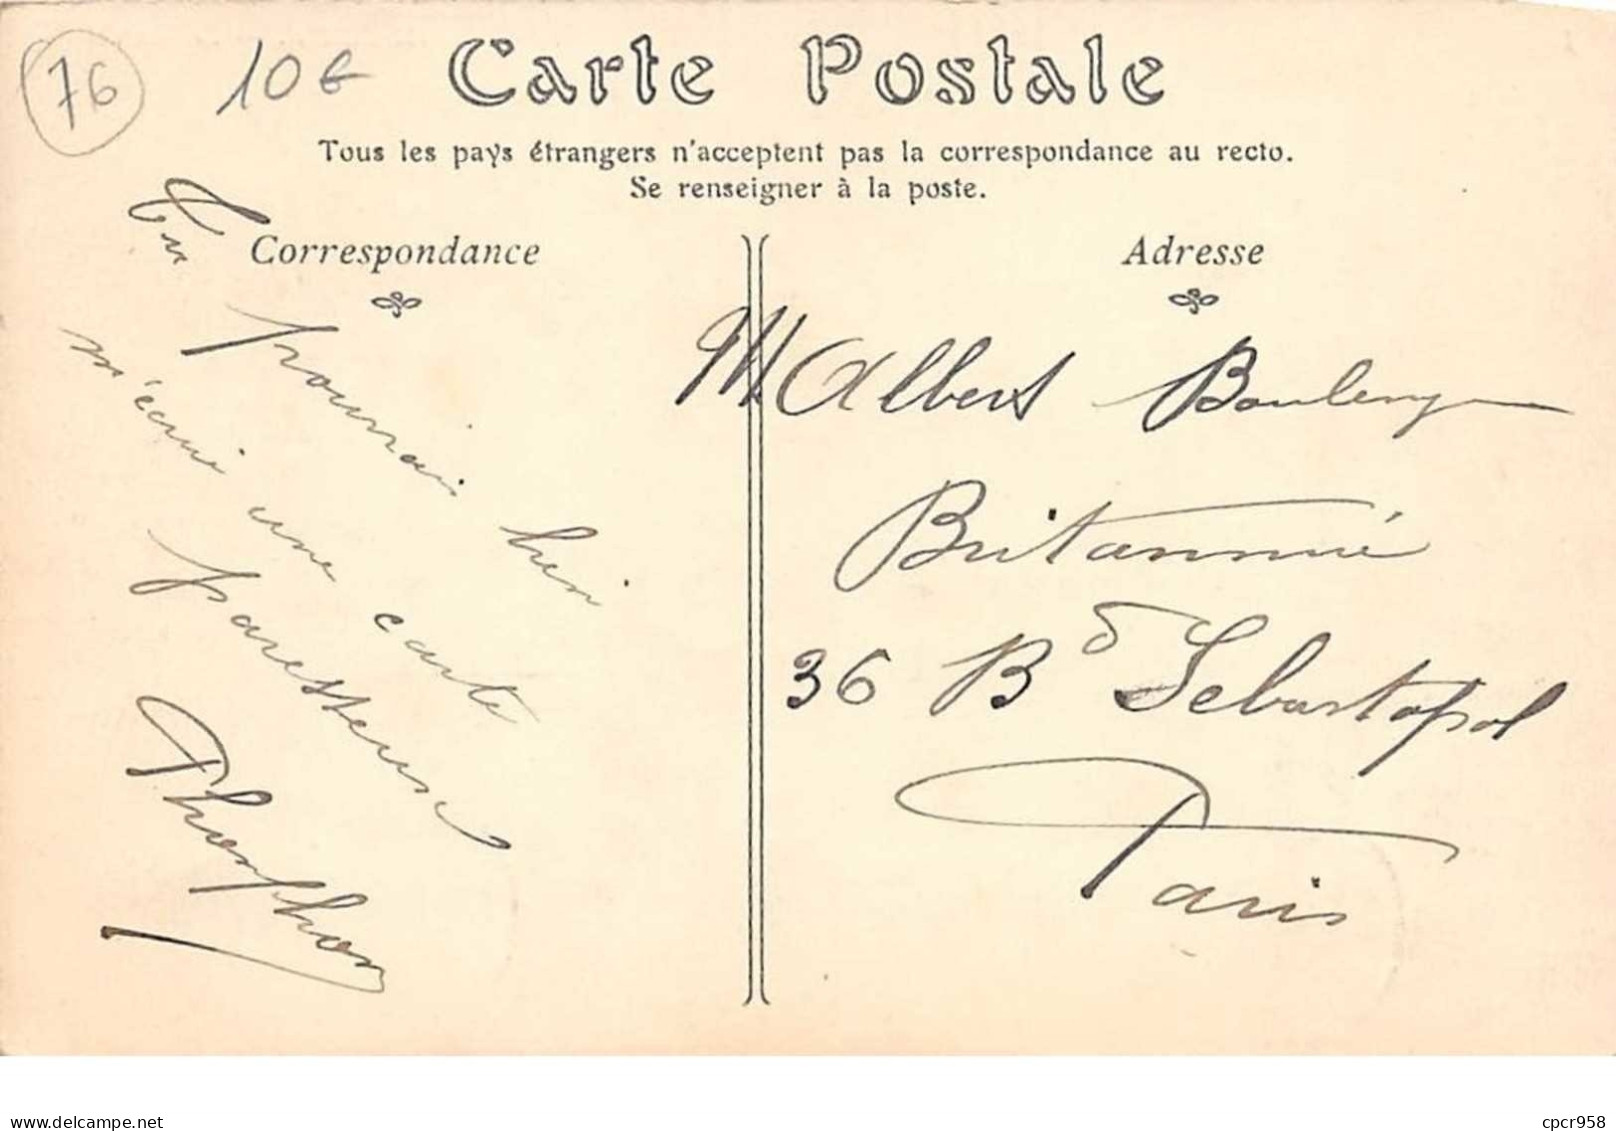 76
10€
Carte Postale
Tous les pays étrangers n'acceptent pas la correspondance au recto.
Se renseigner à la poste.
Correspondance
Tu
pourrais bien
m'écrire une carte
paresseux
Phonphon
Adresse
M Albert Boulenger
Britannia
36 Bd Sebastopol
Paris
www.delcampe.net
cpcr958